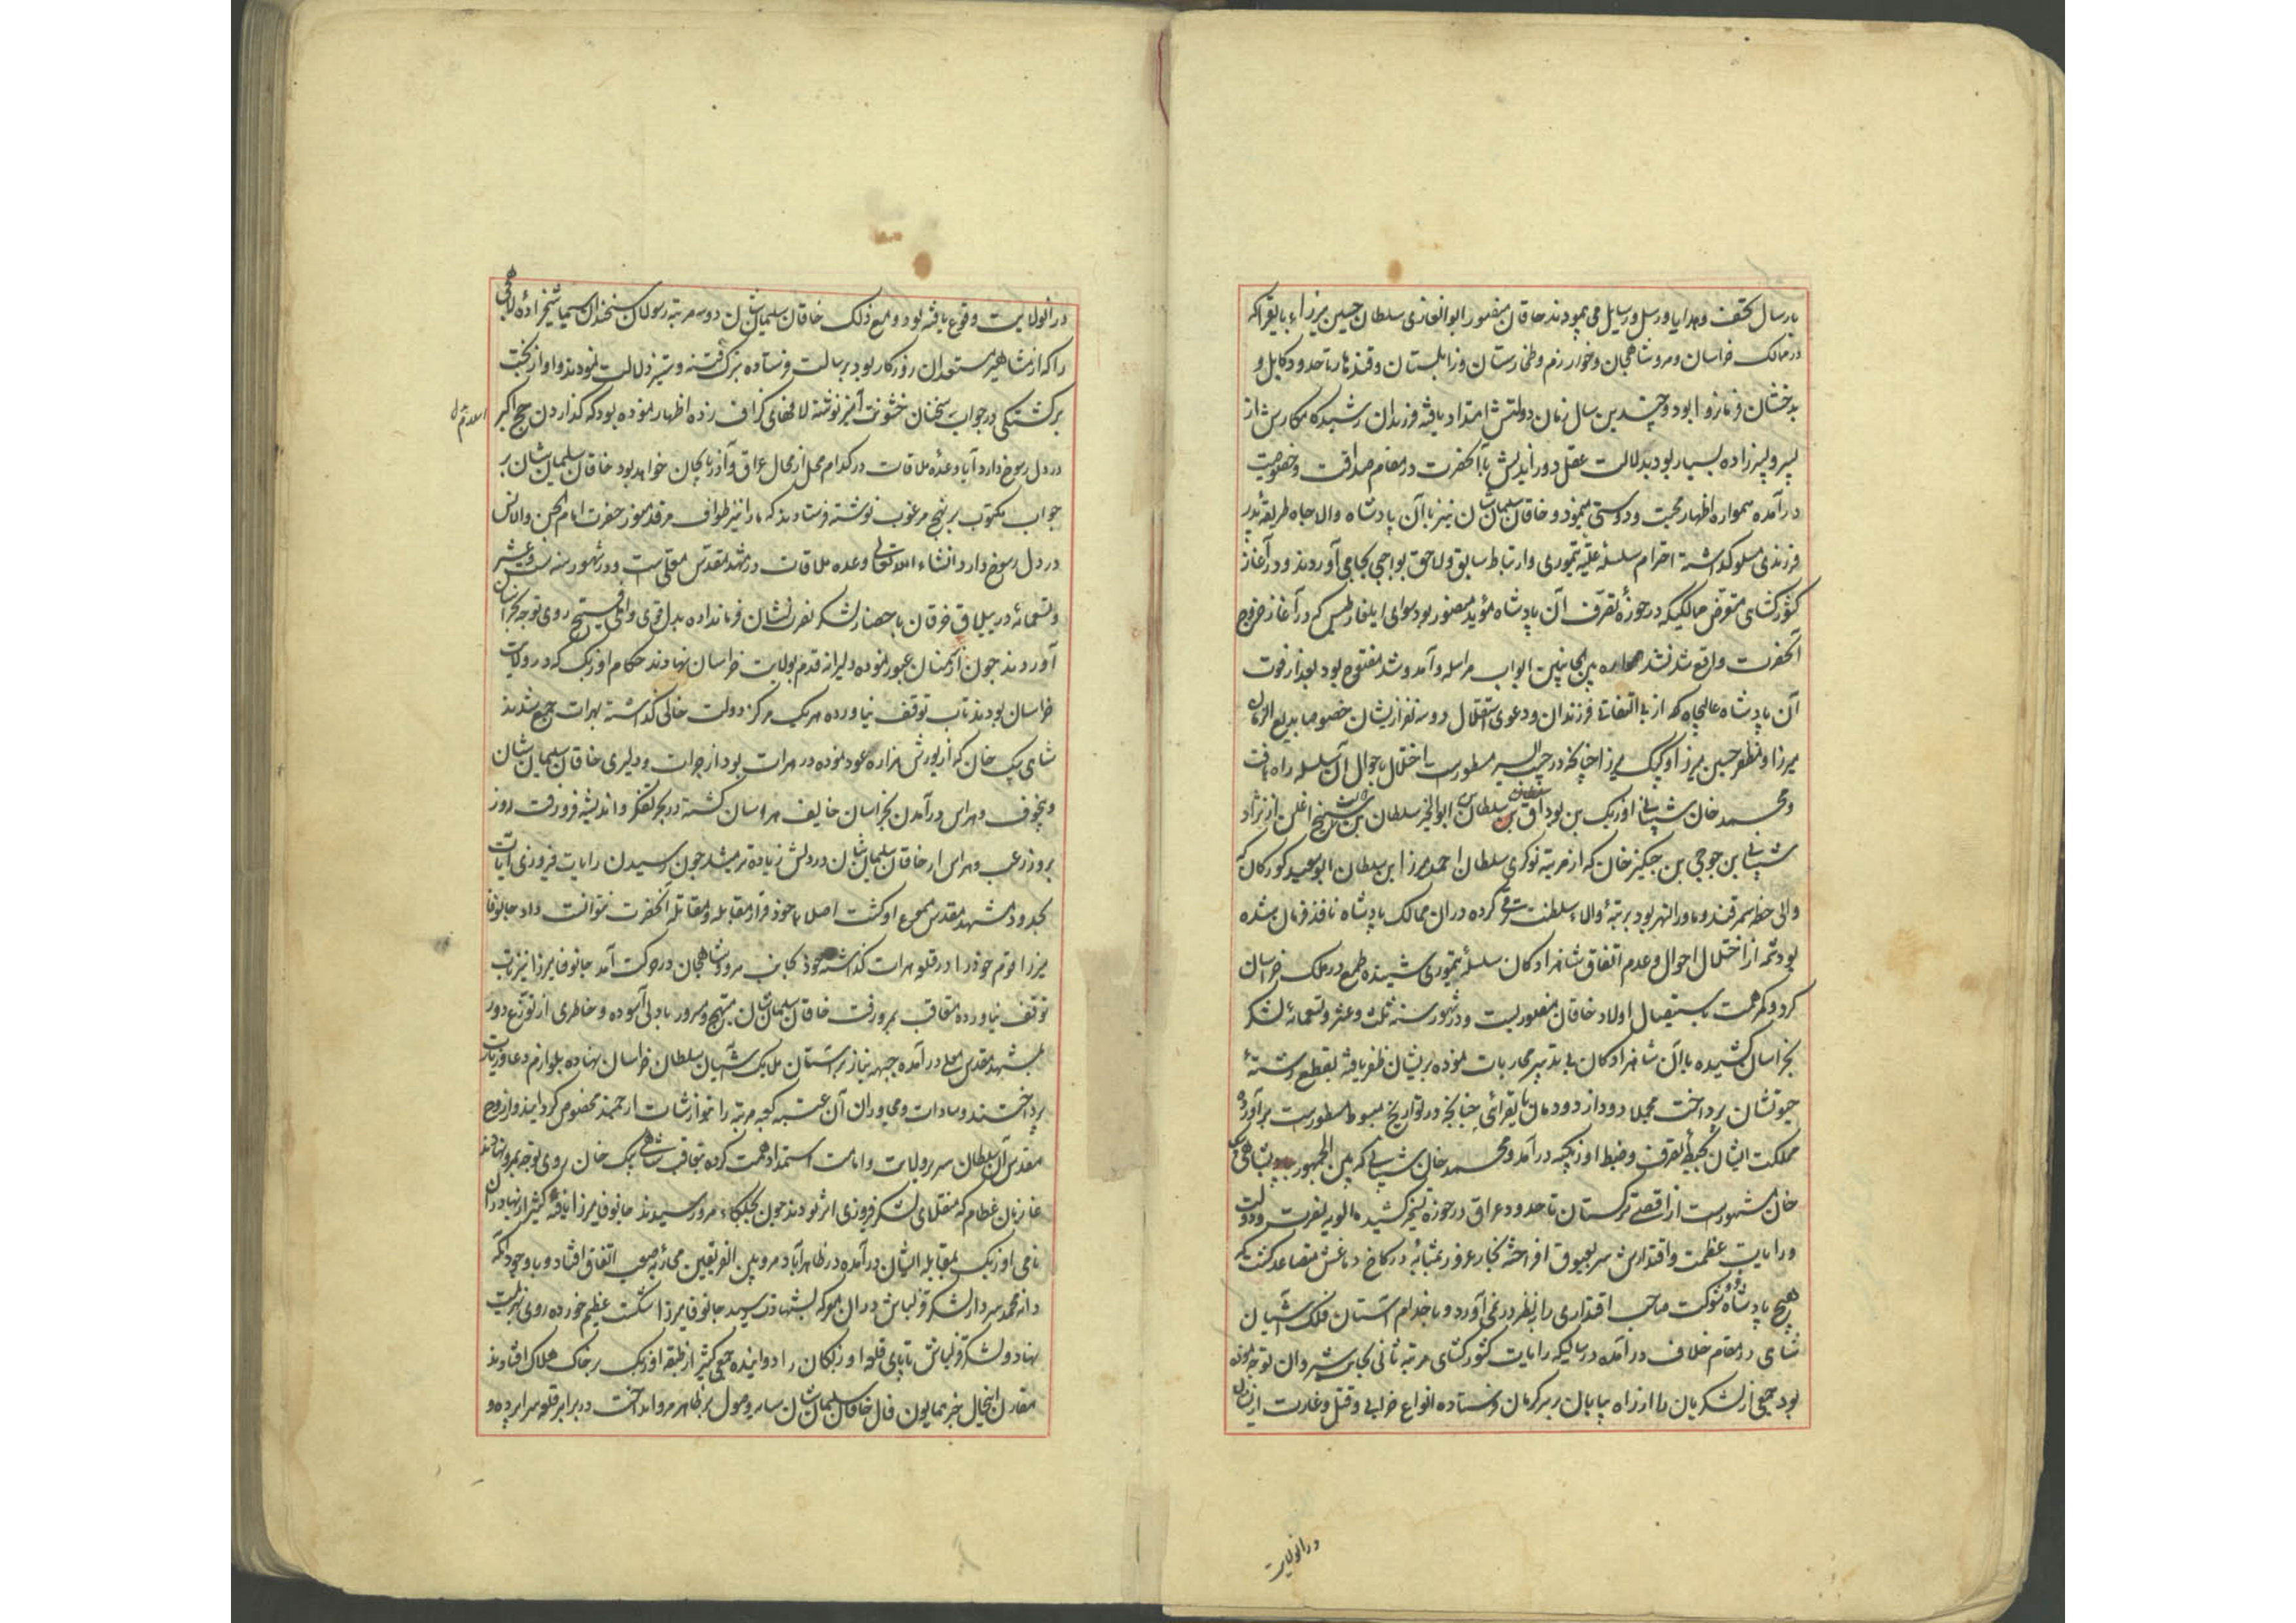 بارسال تحف و هدایا و رسل و رسایل می پیمودند خاقان مغفور ابوالغازی سلطان حسین میرزاء بایقرا که
در ممالک خراسان و مرو شاهجان و خوارزم و طخارستان و زابلستان و قندهار تا حدود کابل و
بدخشان فرمانروا بود و چندین سال زمان دولتش امتداد یافته فرزندان رشید کامکارش از
پسر و پسرزاده بسیار بود بدلالت عقل دوراندیش با آنحضرت در مقام صداقت و خصوصیت
درآمده همواره اظهار محبت و دوستی مینمود و خاقان سلیمان شان نیز با آن پادشاه والاجاه طریقهٔ پدر
فرزندی مسلوک داشته احترام سلسله علیه تیموری و ارتباط سابق و لاحق بواجبی بجای آوردند و در آغاز
کشورکشای متعرض ممالکیکه در حوزهٔ تصرف آن پادشاه مؤید منصور بود سوای ایلغار طبس که در آغاز خروج
آنحضرت واقع شد نشد همواره بین الجانبین ابواب مراسله و آمد و شد مفتوح بود بعد از فوت
آن پادشاه عالیجاه که از بی التفاتی فرزندان و دعوی استقلال دو سه نفر ازیشان خصوصا بدیع الزمان
میرزا و مظفر حسین میرزا و کپک میرزا چنانچه در حبیب السیر مسطورست اختلال باحوال آن سلسله راه یافت
و محمد خان شیبانی اوزبک بن بوداق سلطان بن ابوالخیر سلطان بن شیخ اغلن از نژاد
شیبانی بن جوجی بن چنکیز خان که از مرتبه نوکری سلطان احمد میرزا ابن سلطان ابوسعید کورکان که
والی خطه سمرقند و ماوراءالنهر بود برتبهٔ والاء سلطنت ترقی کرده در ان ممالک پادشاه نافذ فرمان شده
بود شمه از اختلال احوال و عدم اتفاق شاهزادکان سلسلهٔ تیموری شنیده طمع در ملک خراسان
کرد و کمر همت باستیصال اولاد خاقان مغفور بست و در شهور سنه ثلث و عشر و تسعمائه لشکر
بخراسان کشیده با آن شاهزادکان بی تدبیر محاربات نموده بریشان ظفر یافته بقطع رشتهٔ
حیوتشان پرداخت مجملا دود از دودمان بایقرائی چنانچه در تواریخ مبسوط مسطورست برآورده
مملکت ایشان بحیطهٔ تصرف و ضبط اوزبکیه درآمد و محمد خان شیبانی که بین الجمهور بشاهی بیک
خان مشهورست از اقصی ترکستان تا حدود عراق در حوزه تسخیر کشیده الویه نصرت و دولت
و رایات عظمت و اقتدارش سر بعیوق افراخته بخار غرور بمثابهٔ در کاخ دماغش متصاعد کشت که
هیچ پادشاه ذو شوکت صاحب اقتداری را بنظر درنمی آورد و با خدام آستان فلک آشیان
شاهی در مقام خلاف درآمده در سالیکه رایات کشورکشای مرتبه ثانی بجانب شروان توجه نموده
بود جمعی از لشکریان را از راه بیابان بر سر کرمان فرستاده انواع خرابی و قتل و غارت ازیشان
در انولایت
در انولایت وقوع یافته بود و مع ذلک خاقان سلیمان شان دو سه مرتبه رسولان سخندان لاسیما شیخزادهٔ لاهجی
را که از مشاهیر مستعدان روزکار بود برسالت فرستاده بترک فتنه و ستیز دلالت نمودند و او از بخت
برکشتکی در جواب سخنان خشونت آمیز نوشته لافهای کزاف زده اظهار نموده بود که کذاردن حج اکبر
در دل رسوخ دارد آیا وعدهٔ ملاقات در کدام محل از محال عراق و آذربایجان خواهد بود خاقان سلیمان شان بر
جواب مکتوب بر نهج مرغوب نوشته فرستادند که ما را نیز طواف مرقد منور حضرت امام الجن والانس
در دل رسوخ دارد انشاء الله تعالی وعده ملاقات در مشهد مقدس معلی است و در شهور سنه ست و عشر
و تسعمائه در ییلاق خرقان باحضار لشکر نصرت نشان فرمان داده بدل قوی و املی فسیح روی توجه بخراسان
آوردند چون از سمنان عبور نموده دلیرانه قدم بولایت خراسان نهادند حکام اوزبک که در ولایت
خراسان بودند تاب توقف نیاورده هر یک مرکز دولت خالی کذاشته بهرات جمع شدند
شاهی بیک خان که از یورش هزاره عود نموده در هرات بود از جرات و دلیری خاقان سلیمان شان
و بیخوف و هراس درآمدن بخراسان خایف و هراسان کشته در بحر تفکر و اندیشه فرو رفت روز
بروز رعب و هراس از خاقان سلیمان شان در دلش زیاده تر میشد چون رسیدن رایات فیروزی آیات
بحدود مشهد مقدس مسموع او کشت اصلا با خود قرار مقابله و مقاتله آنحضرت نتوانست داد جانوفا
میرزا قوم خود را در قلعه هرات کذاشته خود بجانب مرو شاهجان در حرکت آمد جانوفا میرزا نیز تاب
توقف نیاورده متعاقب بمرو رفت خاقان سلیمان شان مبتهج و مسرور با دلی آسوده و خاطری از توزع دور
بمشهد مقدس معلی درآمده جبهه نیاز بر آستان ملایک آشیان سلطان خراسان نهاده بلوازم دعا و زیارت
پرداختند و سادات و مجاوران آن عتبه کعبه مرتبه را بنوازشات ارجمند مخصوص کردانیدند و از روح
مقدس آن سلطان سریر ولایت و امامت استمداد همت کرده بتعاقب شاهی بیک خان روی توجه بمرو نهادند
غازیان عظام که منقلای لشکر فیروزی اثر بودند چون بجلکاء مرو رسیدند جانوفا میرزا با فرقهٔ کثیر از بهادران
نامی اوزبک بمقابله ایشان درآمده در ظاهرآباد مرو بین الفریقین محاربهٔ صعب اتفاق افتاد و با وجود آنکه
دانه محمد سردار لشکر قزلباش در ان معرکه بشهادت رسید جانوفا میرزا شکست عظیم خورده روی بهزیمت
نهاد و لشکر قزلباش تا پای قلعه اوزبکان را دوانیده جمعی کثیر از طبقه اوزبک بر خاک هلاک افتادند
مقارن اینحال خبر همایون فال خاقان سلیمان شان سایه وصول بر ظاهر مرو انداخت در برابر قلعه سراپرده و